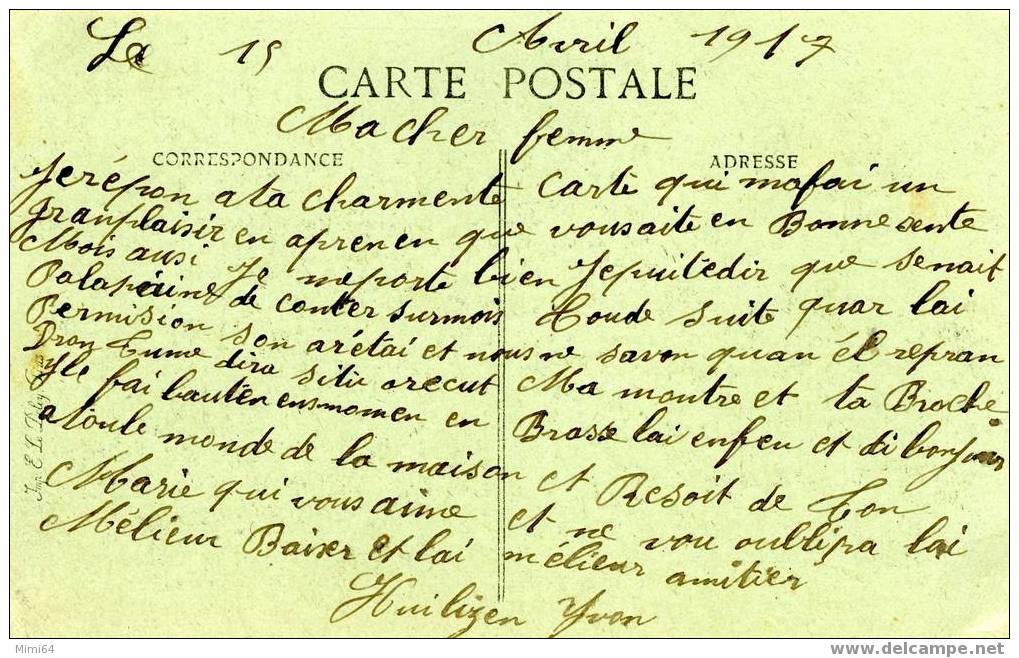 Le 15 Avril 1917
CARTE POSTALE
Macher femme
CORRESPONDANCE
ADRESSE
Jerépon a ta charmente carte qui mafai un
granplaisir en aprenen que vousaite en Bonne sente
Mois ausi Je meporte bien Jepuitedir que senait
Palapeine de conter surmois Toude suite quar lai
Permision son arétai et nous ne savon quan él repran
Dron Tume dira situ arecut Ma montre et ta Broche
yle fai bautén ensmomen en Brasse lai enfen et di bonjour
a toule monde de la maison et Resoit de Ton
Marie qui vous aime et ne vou oublira lai
Mélieur Baiser et lai mélieur amitier
Huilizen Yvon
Mimi64
www.delcampe.net